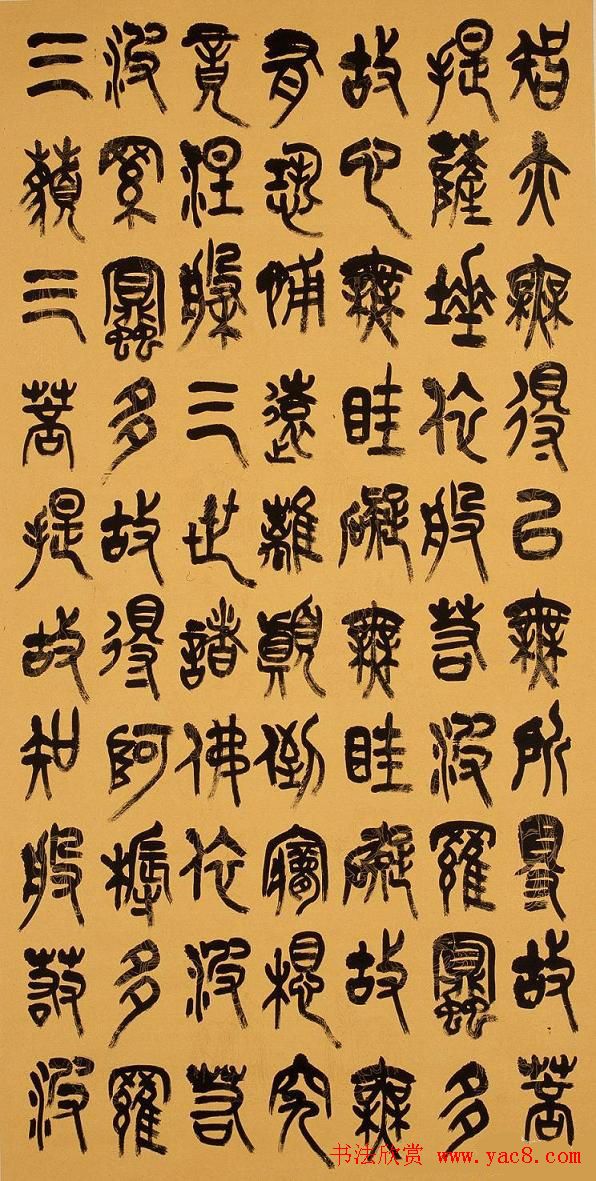 智亦無得以無所得故菩
提薩埵依般若波羅蜜多
故心無罣礙無罣礙故無
有恐怖遠離顛倒夢想究
竟涅槃三世諸佛依波若
波羅蜜多故得阿耨多羅
三藐三菩提故知般若波
书法欣赏 www.yac8.com